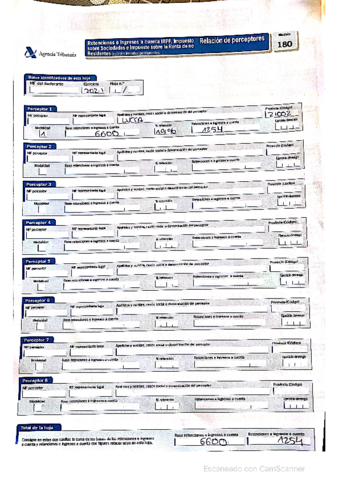 Agencia Tributaria
Retenciones e ingresos a cuenta IRPF, Impuesto
sobre Sociedades e Impuesto sobre la Renta de no
Residentes
Relación de perceptores
Modelo
180
Datos identificativos de esta hoja
NIF del declarante Ejercicio Hoja n.º
2021 1/
Perceptor 1
NIF perceptor NIF representante legal Apellidos y nombre, razón social o denominación del perceptor Provincia (Código)
LUCIA
Modalidad Base retenciones e ingresos a cuenta % retención Retenciones e ingresos a cuenta Ejercicio devengo
1 6600 19% 1254
Perceptor 2
NIF perceptor NIF representante legal Apellidos y nombre, razón social o denominación del perceptor Provincia (Código)
Modalidad Base retenciones e ingresos a cuenta % retención Retenciones e ingresos a cuenta Ejercicio devengo
Perceptor 3
NIF perceptor NIF representante legal Apellidos y nombre, razón social o denominación del perceptor Provincia (Código)
Modalidad Base retenciones e ingresos a cuenta % retención Retenciones e ingresos a cuenta Ejercicio devengo
Perceptor 4
NIF perceptor NIF representante legal Apellidos y nombre, razón social o denominación del perceptor Provincia (Código)
Modalidad Base retenciones e ingresos a cuenta % retención Retenciones e ingresos a cuenta Ejercicio devengo
Perceptor 5
NIF perceptor NIF representante legal Apellidos y nombre, razón social o denominación del perceptor Provincia (Código)
Modalidad Base retenciones e ingresos a cuenta % retención Retenciones e ingresos a cuenta Ejercicio devengo
Perceptor 6
NIF perceptor NIF representante legal Apellidos y nombre, razón social o denominación del perceptor Provincia (Código)
Modalidad Base retenciones e ingresos a cuenta % retención Retenciones e ingresos a cuenta Ejercicio devengo
Perceptor 7
NIF perceptor NIF representante legal Apellidos y nombre, razón social o denominación del perceptor Provincia (Código)
Modalidad Base retenciones e ingresos a cuenta % retención Retenciones e ingresos a cuenta Ejercicio devengo
Perceptor 8
NIF perceptor NIF representante legal Apellidos y nombre, razón social o denominación del perceptor Provincia (Código)
Modalidad Base retenciones e ingresos a cuenta % retención Retenciones e ingresos a cuenta Ejercicio devengo
Total de la hoja
Base retenciones e ingresos a cuenta Retenciones e ingresos a cuenta
6600 1254
Escaneado con CamScanner